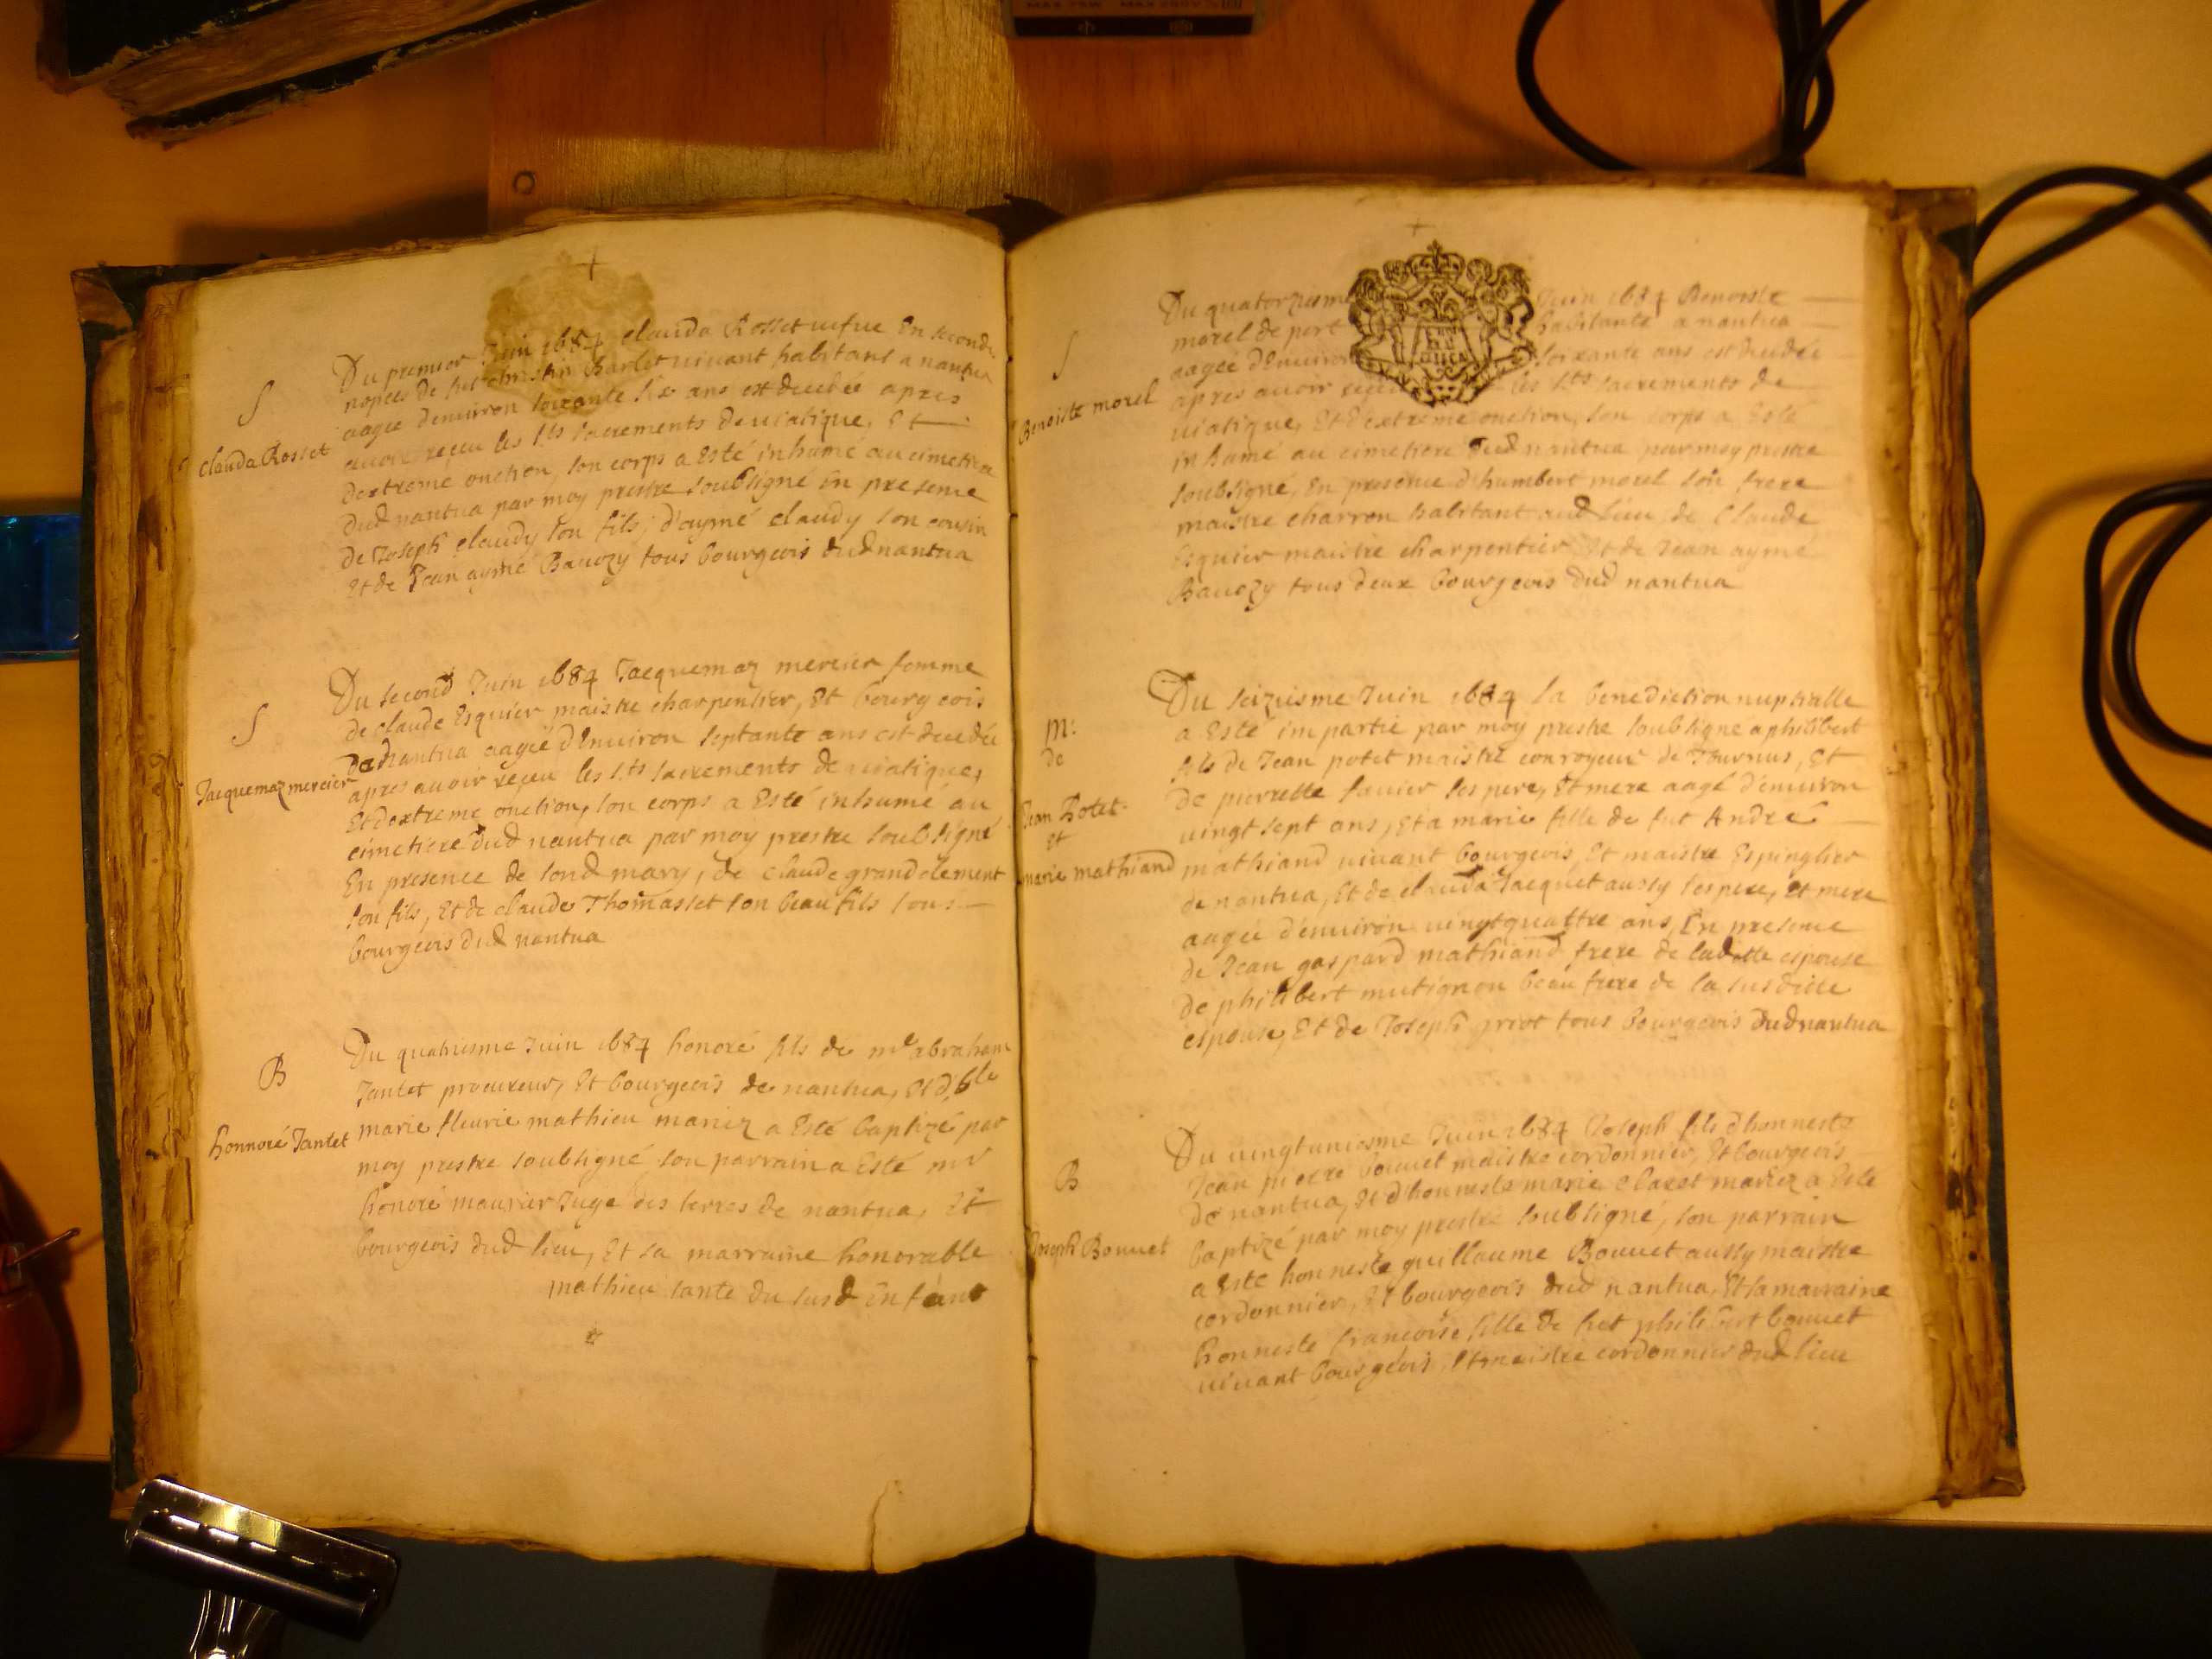 S
Clauda Rosset
Du premier Juin 1684 clauda Rosset vefue En seconde
nopces de feu Barlet vivant habitant a nantua
aagee denuiron soixante six ans est decedée apres
auoir receu les Sts sacrements de viatique, Et
dextreme onction, son corps a Esté inhumé au cimetiere
dud nantua par moy prestre soubsigné En presence
de Joseph claudy son fils, d'aymé claudy son cousin
Et de Jean aymé Bauozy tous bourgeois dud nantua
S
Jacquemaz mercier
Du second Juin 1684 Jacquemaz mercier femme
de claude Esquier maistre charpentier, Et bourgeois
de nantua aagée d'Enuiron septante ans est decedée
apres auoir receu les Sts sacrements de viatique,
Et dextreme onction, son corps a Esté inhumé au
cimetiere dud nantua par moy prestre soubsigné
En presence de sond mary, de Claude grandclement
son fils, Et de claude Thomasset son beau fils tous
bourgeois dud nantua
B
honnoré Jantet
Du quatriesme Juin 1684 honoré fils de me abraham
Jantet procureur, Et bourgeois de nantua, Et
marie fleurie mathieu mariez a Esté baptizé par
moy prestre soubsigné son parrain a Esté mr
honoré maurier Juge des terres de nantua, Et
bourgeois dud lieu, Et sa marraine honorable
mathieu tante du susd Enfant
S
Benoiste morel
Du quatorziesme Juin 1684 Benoiste
morel de port habitante a nantua
aagée d'Enuiron soixante ans est decedée
apres auoir receu les Sts sacrements de
viatique, Et dextreme onction, son corps a Esté
inhumé au cimetiere dud nantua par moy prestre
soubsigné, En presence d'humbert morel son frere
maistre charron habitant aud lieu, de Claude
Esquier maistre charpentier Et de Jean aymé
Bauozy tous deux bourgeois dud nantua
M:
de
Jean Potet
et
marie mathiand
Du seiziesme Juin 1684 la benediction nuptialle
a Esté impartie par moy prestre soubsigne a philibert
fils de Jean potet maistre conroyeur de Tournus, Et
de pierrette sauier ses pere, Et mere aagé d'enuiron
vingt sept ans, Et a marie fille de fut André
mathiand vivant bourgeois, Et maistre Espinglier
de nantua, Et de clauda Jacquet aussy ses pere, Et mere
aagée d'enuiron vingt quattre ans, En presence
de Jean gaspard mathiand frere de laditte espouse
de philibert mutignon beau frere de la susditte
espouse, Et de Joseph priot tous bourgeois dud nantua
B
Joseph Bouuet
Du vingt uniesme Juin 1684 Joseph fils d'honneste
Jean pierre bouuet maistre cordonnier, Et bourgeois
de nantua, Et d'honneste marie claret mariez a Esté
baptizé par moy prestre soubsigné, son parrain
a Esté honneste guillaume Bouuet aussy maistre
cordonnier, Et bourgeois dud nantua, Et sa marraine
honneste francoise fille de feu philibert bouuet
vivant bourgeois, Et maistre cordonnier dud lieu